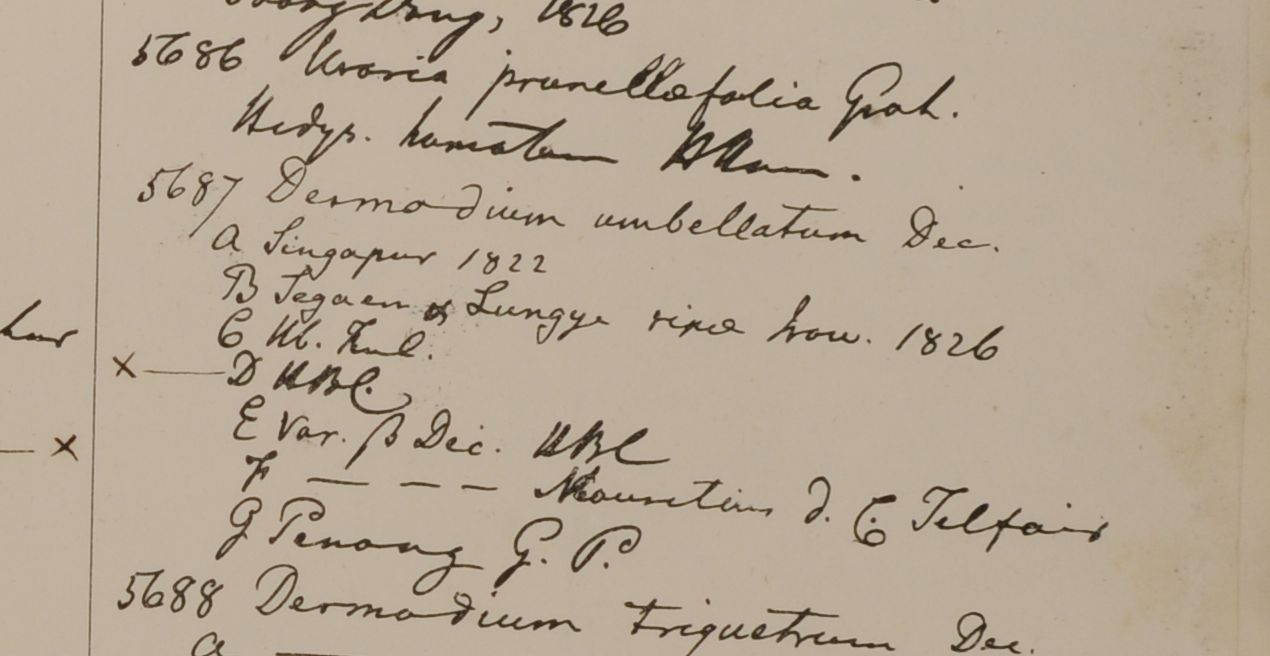 Dong, 1826
5686 Uraria prunellæfolia Grah.
Hedys. hamatum HHam.
5687 Desmodium umbellatum Dec.
a Singapur 1822
B Segaen & Lungye ripæ Irow. 1826
C Hb. Finl.
x — D HBC.
E Var. β Dec. HBC
F — — — — Mauritius d. C. Telfair
G Penang G. P.
5688 Desmodium triquetrum Dec.
a
x